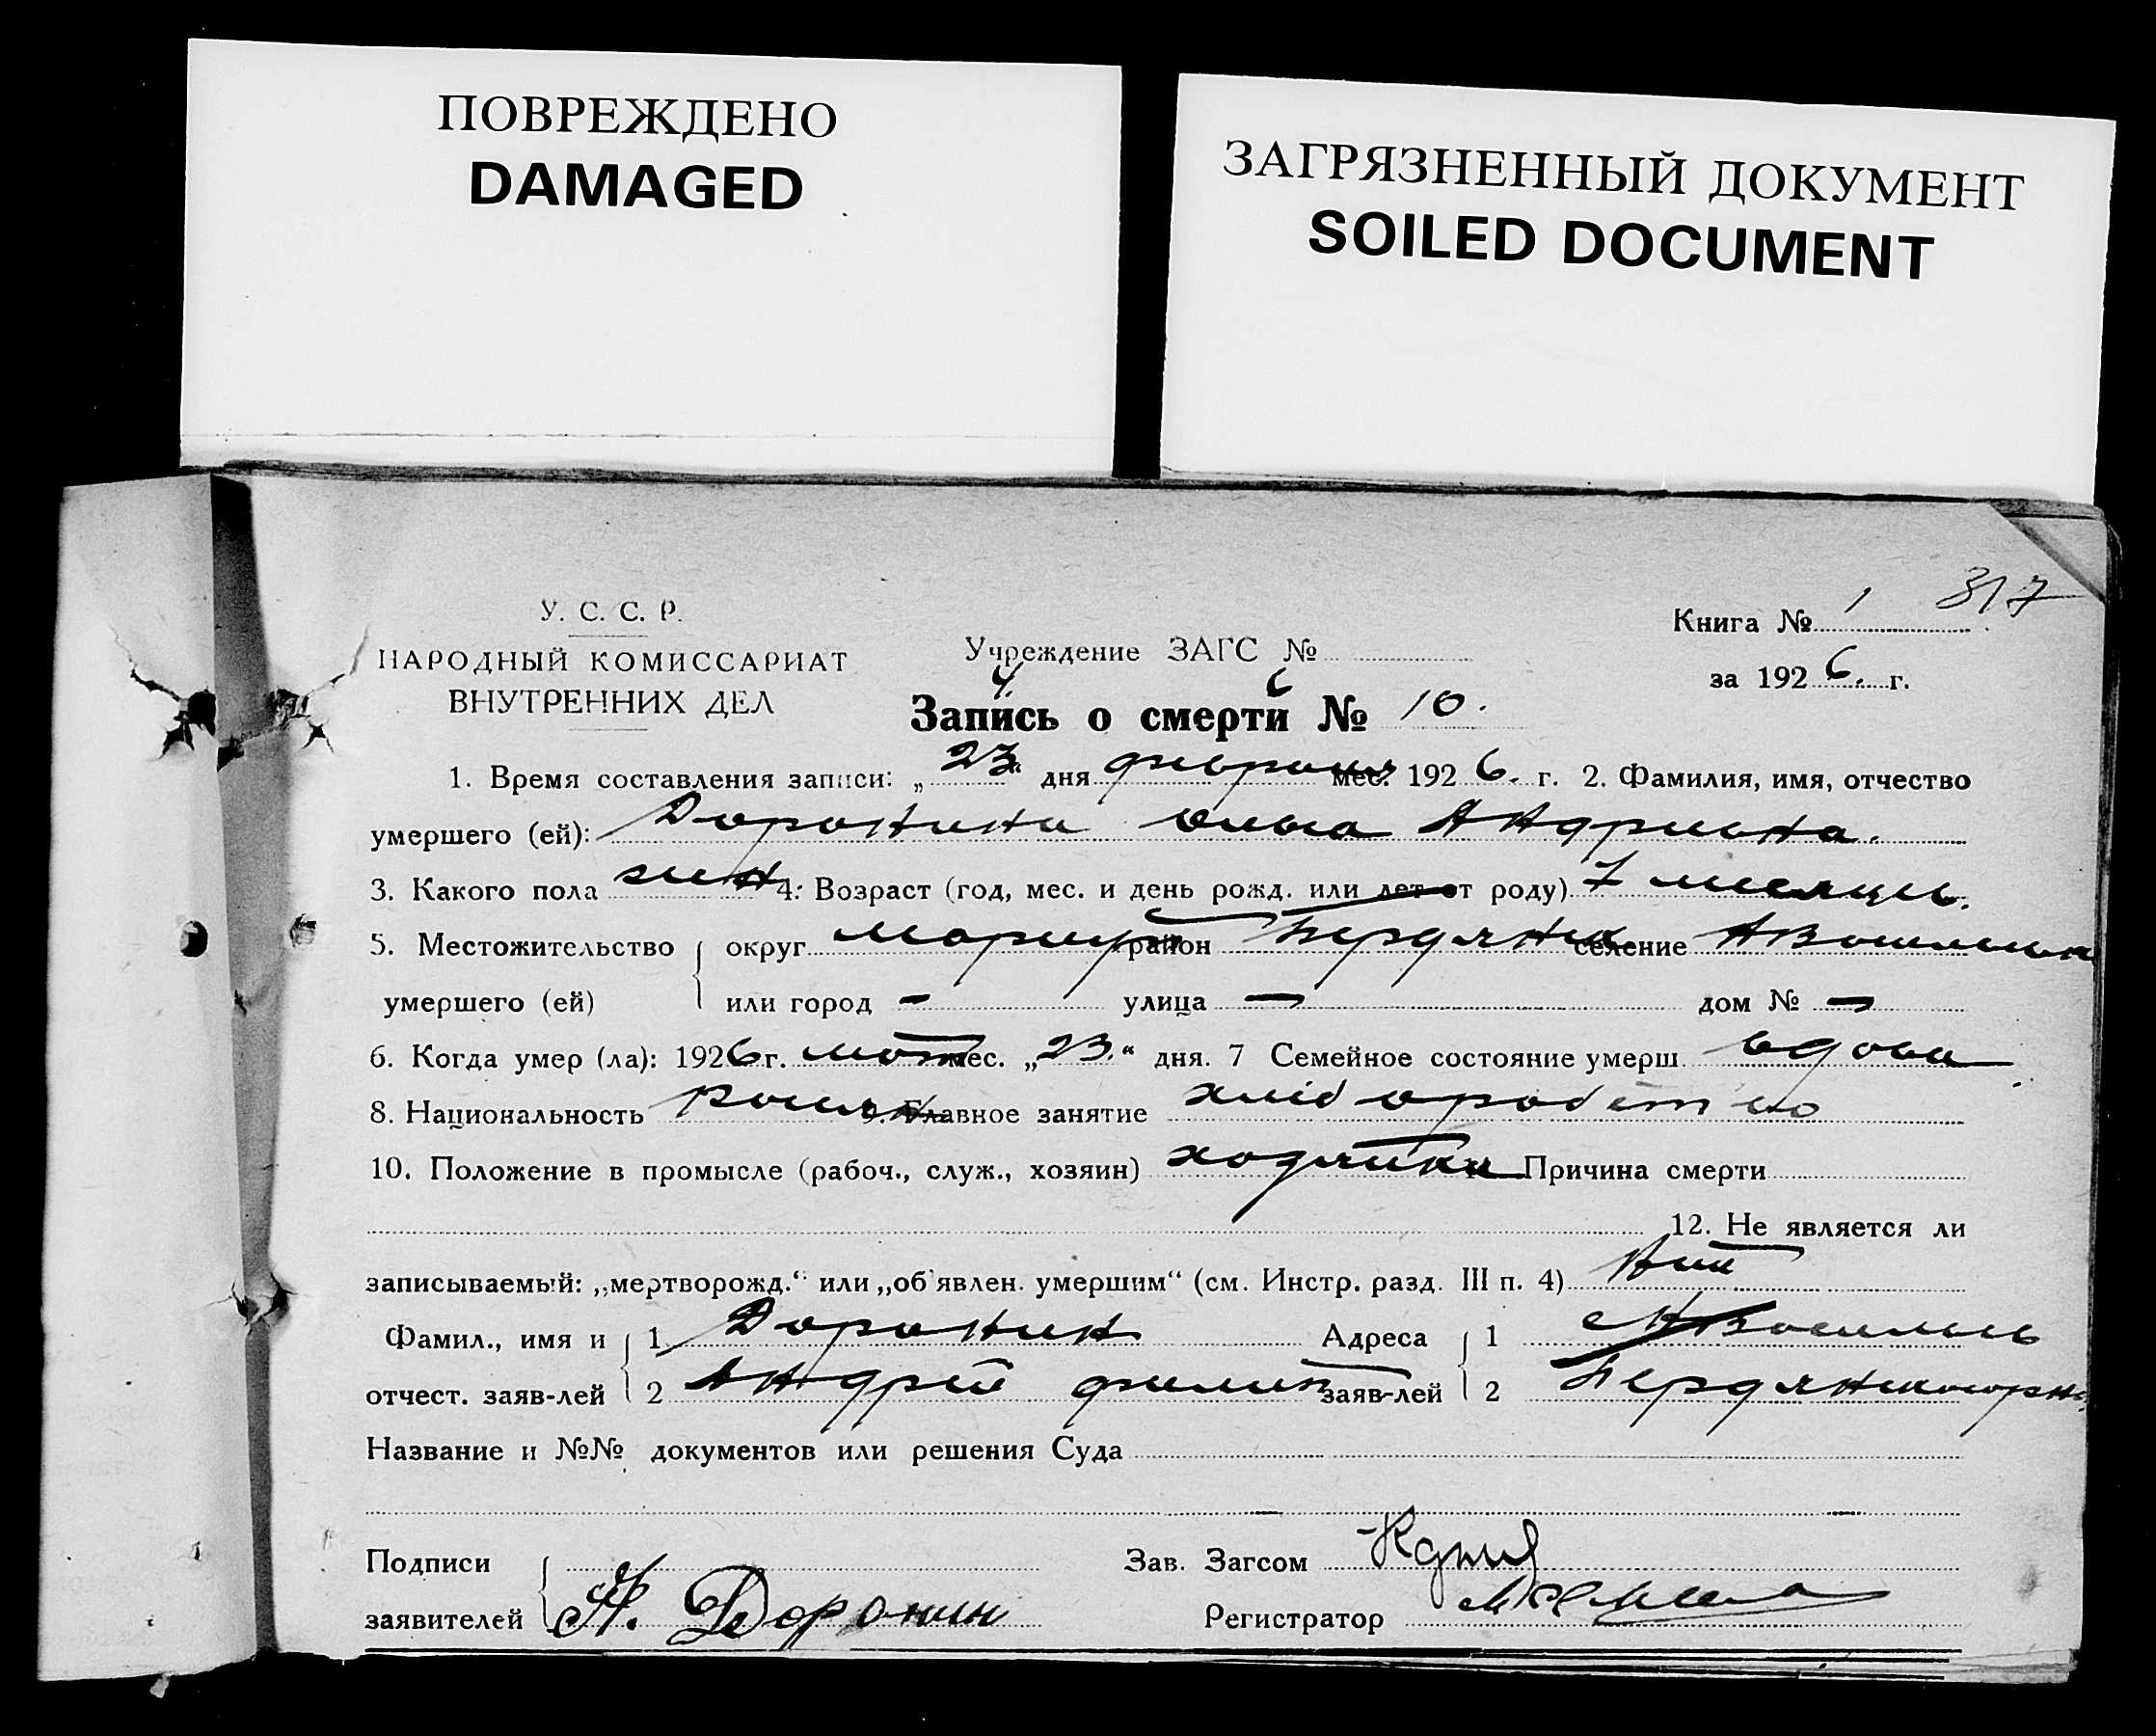 ПОВРЕЖДЕНО
DAMAGED
ЗАГРЯЗНЕННЫЙ ДОКУМЕНТ
SOILED DOCUMENT
У. С. С. Р.
НАРОДНЫЙ КОМИССАРИАТ
ВНУТРЕННИХ ДЕЛ
Учреждение ЗАГС №
Книга № 1 317
за 1926. г.
Запись о смерти № 10.
1. Время составления записи: „23“ дня мес. 1926. г. 2. Фамилия, имя, отчество
умершего (ей): Доронина
3. Какого пола жен 4. Возраст (год, мес. и день рожд. или лет от роду) 7
5. Местожительство округ Мариуп район Бердянск селение
умершего (ей) или город - улица - дом № -
6. Когда умер (ла): 1926 г. мес. „23.“ дня. 7 Семейное состояние умерш. вдова
8. Национальность 9. Главное занятие
10. Положение в промысле (рабоч., служ., хозяин) хозяйка Причина смерти
12. Не является ли
записываемый: „мертворожд.“ или „об'явлен. умершим“ (см. Инстр. разд. III п. 4)
Фамил., имя и 1 Доронин Адреса 1
отчест. заяв-лей 2 Андрей филип заяв-лей 2
Название и №№ документов или решения Суда
Подписи Зав. Загсом
заявителей А. Доронин Регистратор